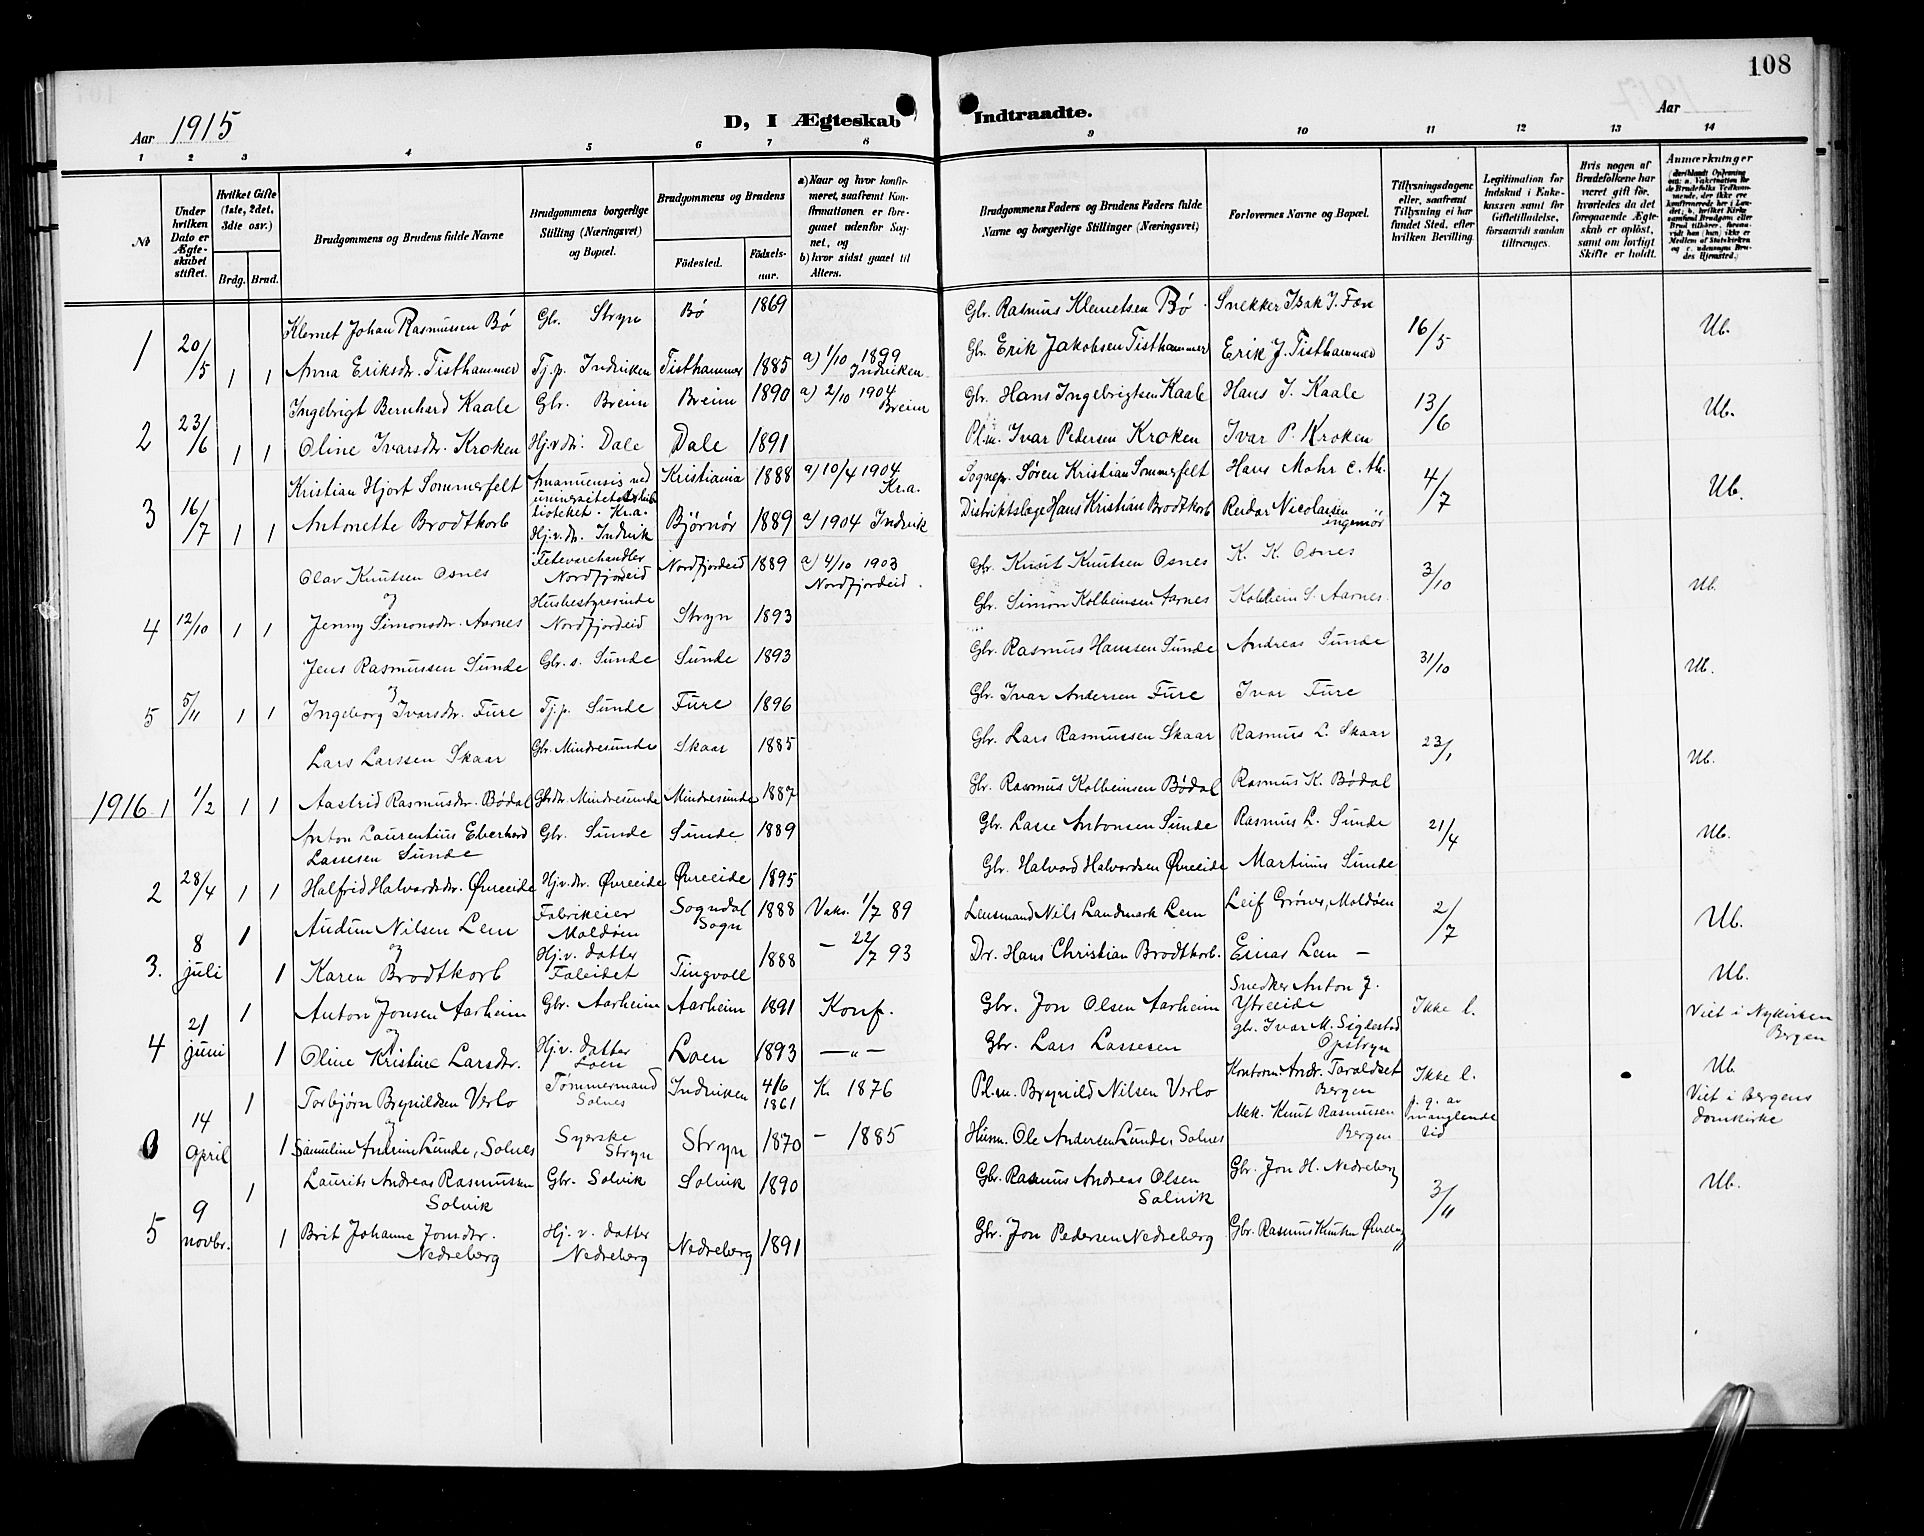 108
Aar 1915
D, I Ægteskab Indtraadte.
Aar
1 2 3 4 5 6 7 8 9 10 11 12 13 14
No
Under hvilken Dato er Ægteskabet stiftet.
Hvilket Gifte (1ste, 2det, 3die osv.)
Brdg. Brud.
Brudgommens og Brudens fulde Navne
Brudgommens borgerlige Stilling (Næringsvei) og Bopæl.
Brudgommens og Brudens
Fødested. Fødselsaar.
a) Naar og hvor konfirmeret, saafremt Konfirmationen er foregaaet udenfor Sognet, og
b) hvor sidst gaaet til Alters.
Brudgommens Faders og Brudens Faders fulde Navne og borgerlige Stillinger (Næringsvei)
Forlovernes Navne og Bopæl.
Tillysningsdagene eller, saafremt Tillysning ei har fundet Sted, efter hvilken Bevilling.
Legitimation for Indskud i Enkekassen samt for Giftetilladelse, forsaavidt saadan tiltrænges.
Hvis nogen af Brudefolkene har været gift før, hvorledes da det foregaaende Ægteskab er opløst, samt om lovligt Skifte er holdt.
Anmærkninger
Klemet Johan Rasmussen Bø Gbr. Stryn Bø 1869 Gbr. Rasmus Klemetsen Bø Snekker Isak J. Fæn
1 20/5 1 1 Anna Eriksdtr. Tisthammer Tj.p. Indviken Tisthammer 1885 a) 1/10 1899 Indviken Gbr. Erik Jakobsen Tisthammer Erik J. Tisthammer 16/5 Ub.
Ingebrigt Bernhard Kaale Gbr. Breim Breim 1890 a) 2/10 1904 Breim Gbr. Hans Ingebrigtsen Kaale Hans I. Kaale
2 23/6 1 1 Oline Ivarsdtr. Kroken Hj.v.dtr. Dale Dale 1891 Pl.m. Ivar Pedersen Kroken Ivar P. Kroken 13/6 Ub.
Kristian Hjort Sommerfelt Amanuensis ved universitetsbiblioteket. Kr.a. Kristiania 1888 a) 10/4 1904 Kr.a. Sognepr. Sören Kristian Sommerfelt Hans Mohr c. th.
3 16/7 1 1 Antonette Brodtkorb Hj.v.dr. Indvik Bjørnør 1889 a) 1904 Indvik Distriktslæge Hans Kristian Brodtkorb Reidar Nicolaisen ingeniør 4/7 Ub.
Olav Knutsen Osnes Fetevarehandler Nordfjordeid Nordfjordeid 1889 a) 4/10 1903 Nordfjordeid. Gbr. Knut Knutsen Osnes K. K. Osnes
og
4 12/10 1 1 Jenny Simonsdtr. Aarnes Husbestyrerinde Nordfjordeid Stryn 1893 Gbr. Simon Kolbeinsen Aarnes Kolbein S. Aarnes. 3/10 Ub.
Jens Rasmussen Sunde Gbr. s. Sunde Sunde 1893 Gbr. Rasmus Hansen Sunde Andreas Sunde
og
5 5/11 1 1 Ingeborg Ivarsdtr. Fure Tj.p. Sunde Fure 1896 Gbr. Ivar Andersen Fure Ivar Fure 31/10 Ub.
Lars Larssen Skaar Gbr. Mindresunde Skaar 1885 Gbr. Lars Rasmussen Skaar Rasmus L. Skaar
1916 1 1/2 1 1 Aastrid Rasmusdtr. Bødal Gbrdtr. Mindresunde Mindresunde 1887 Gbr. Rasmus Kolbeinsen Bødal Rasmus K. Bødal 23/1 Ub.
Anton Laurentius Eberhard Lassesen Sunde Gbr. Sunde Sunde 1889 Gbr. Lasse Antonsen Sunde Rasmus L. Sunde
2 28/4 1 1 Halfrid Halvardsdtr. Øvreeide Hj.v.dtr. Øvreeide Øvreeide 1895 Gbr. Halvard Halvardsen Øvreeide Martinus Sunde 21/4 Ub.
Audun Nilsen Lem Fabrikeier Moldøen Sogndal Sogn 1888 Vaks. 1/7 89 Lensmand Nils Landmark Lem Leif Grøner, Moldøen
og
3. 8 juli 1 1 Karen Brodtkorb Hj.v. datter Faleidet Tingvoll 1888 – 22/7 93 Dr. Hans Christian Brodtkorb. Einar Lem – 2/7 Ub.
Anton Jonsen Aarheim Gbr. Aarheim Aarheim 1891 Konf. Gbr. Jon Olsen Aarheim Snedker Anton J. Ytreeide Ikke l. Ub. Viet i Nykirken Bergen
og
4 21 juni 1 1 Oline Kristine Larsdtr. Hj.v. datter Loen Loen 1893 —„— Gbr. Lars Lassesen gbr. Ivar M. Sigdestad Opstryn
Torbjørn Brynildsen Verlo Tømmermand Solnes Indviken 4/6 1861 K. 1876 Pl.m. Brynild Nilsen Verlo Kontorm. Andr. Taraldset Bergen Ikke l. p. g. av manglende tid Ub. Viet i Bergens domkirke
og
0 14 april 1 1 Samuline Andrine Lunde, Solnes Syerske Stryn Stryn 1870 – 1885 Husm. Ole Andersen Lunde, Solnes Mek. Knut Rasmussen Bergen
Laurits Andreas Rasmussen Solvik Gbr. Solvik Solvik 1890 Gbr. Rasmus Andreas Olsen Solvik Gbr. Jon H. Nedreberg
5 9 novbr. 1 1 Brit Johanne Jonsdtr. Nedreberg Hj. v. datter Nedreberg Nedreberg 1891 Gbr. Jon Pedersen Nedreberg Gbr. Rasmus Knutsen 3/11 Ub.